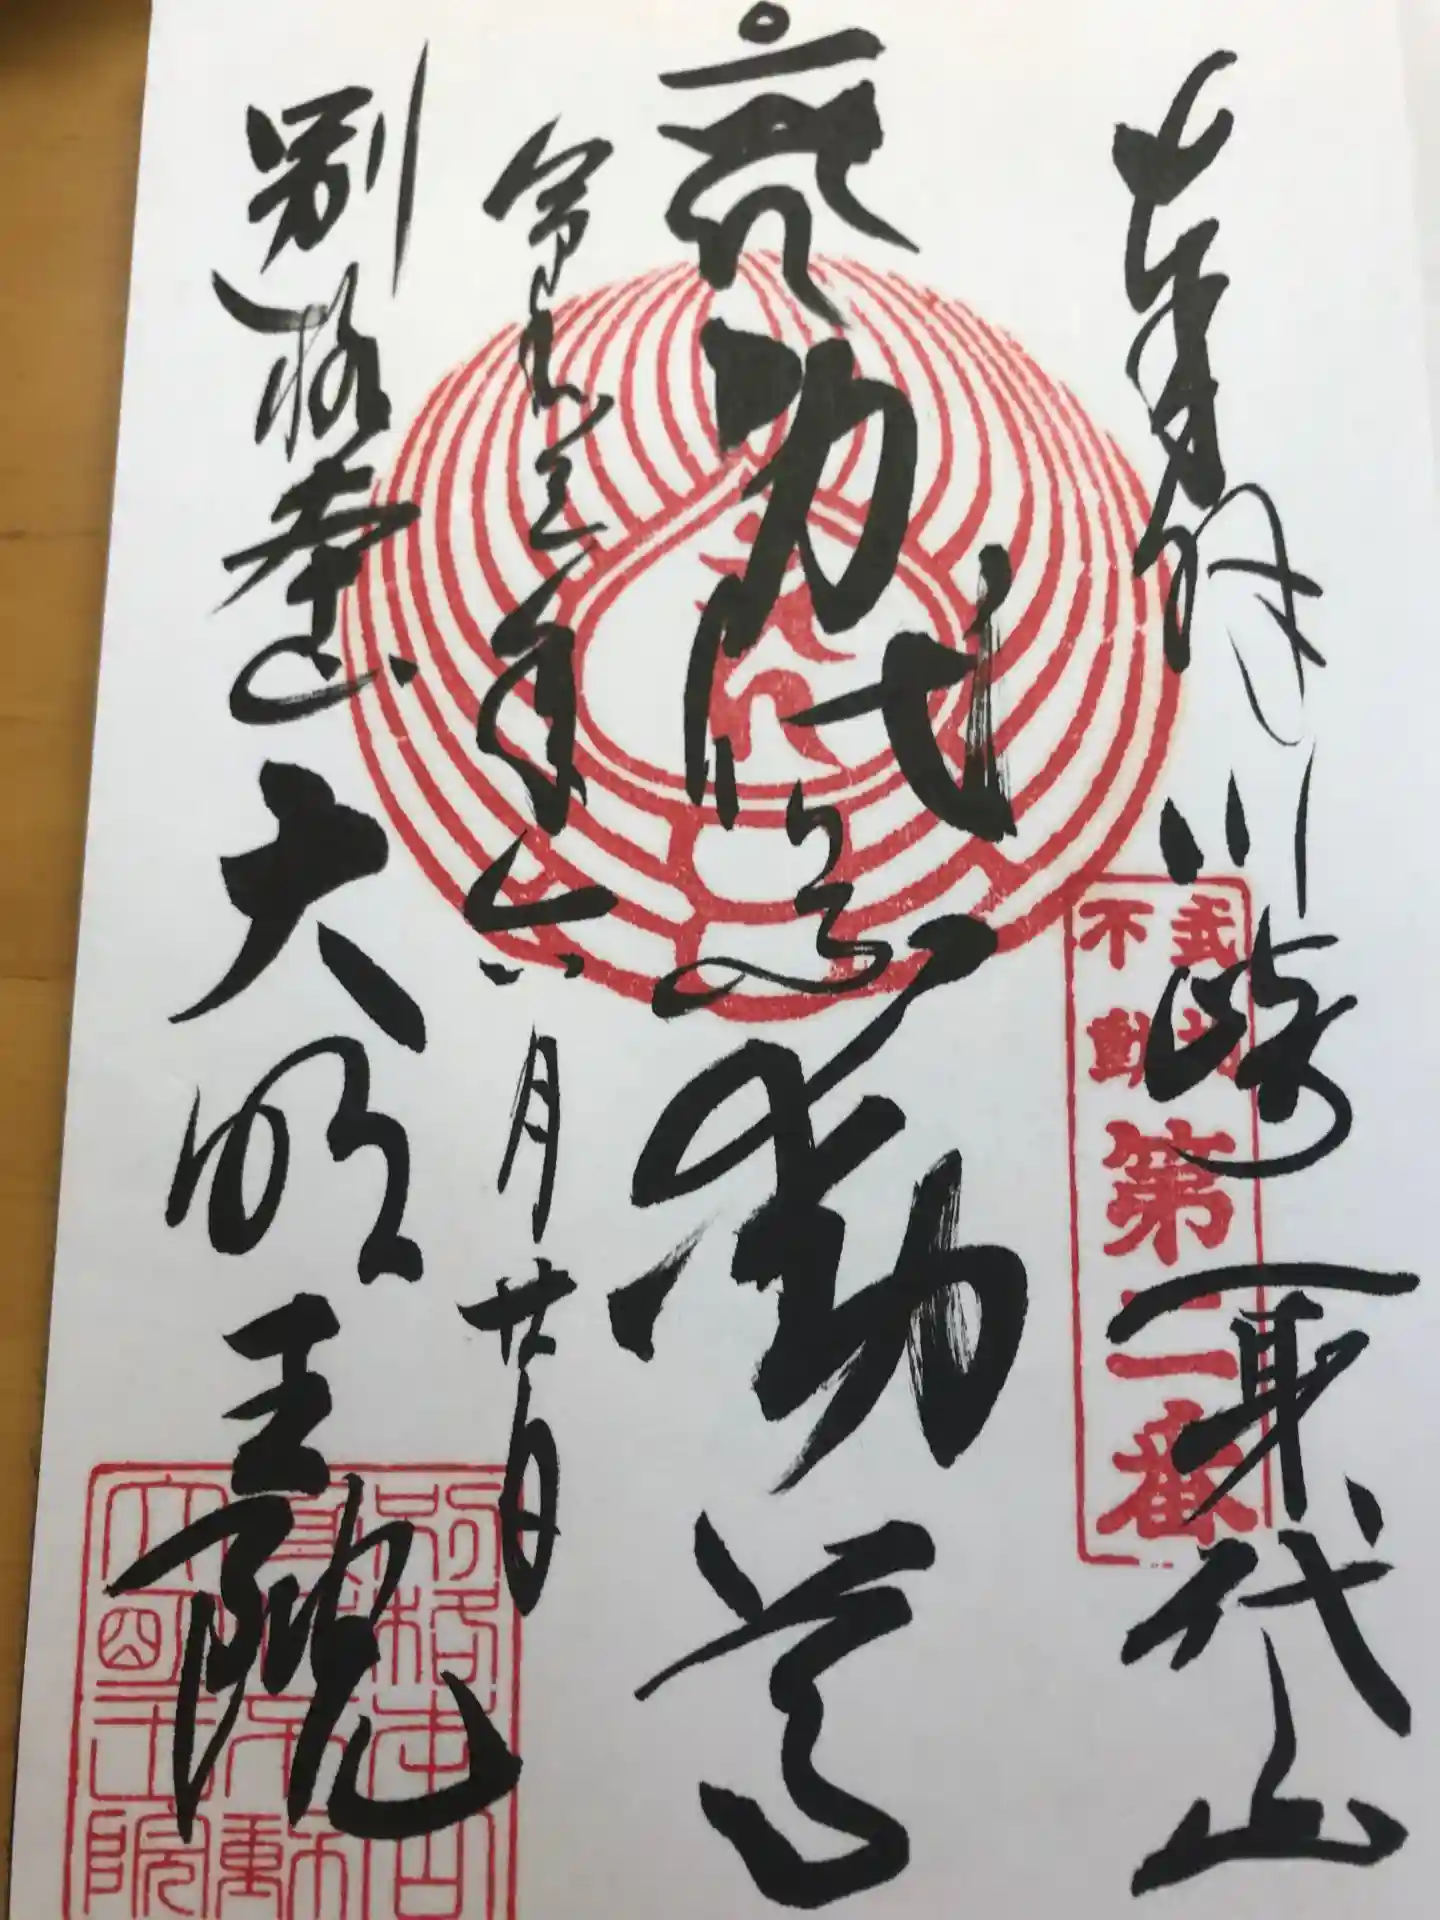 奉拝 川崎 身代山
武相
不動
第二番
身代不動尊
令和三年六月廿日
別格本山 大明王院
別格本山
身代不動
大明王院